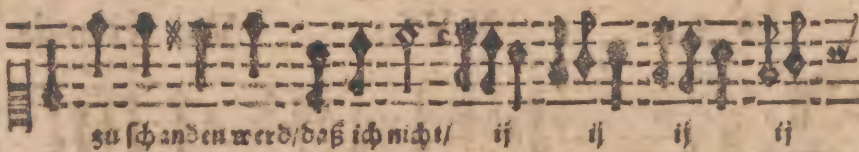 zu schanden werd/daß ich nicht/ ij ij ij ij